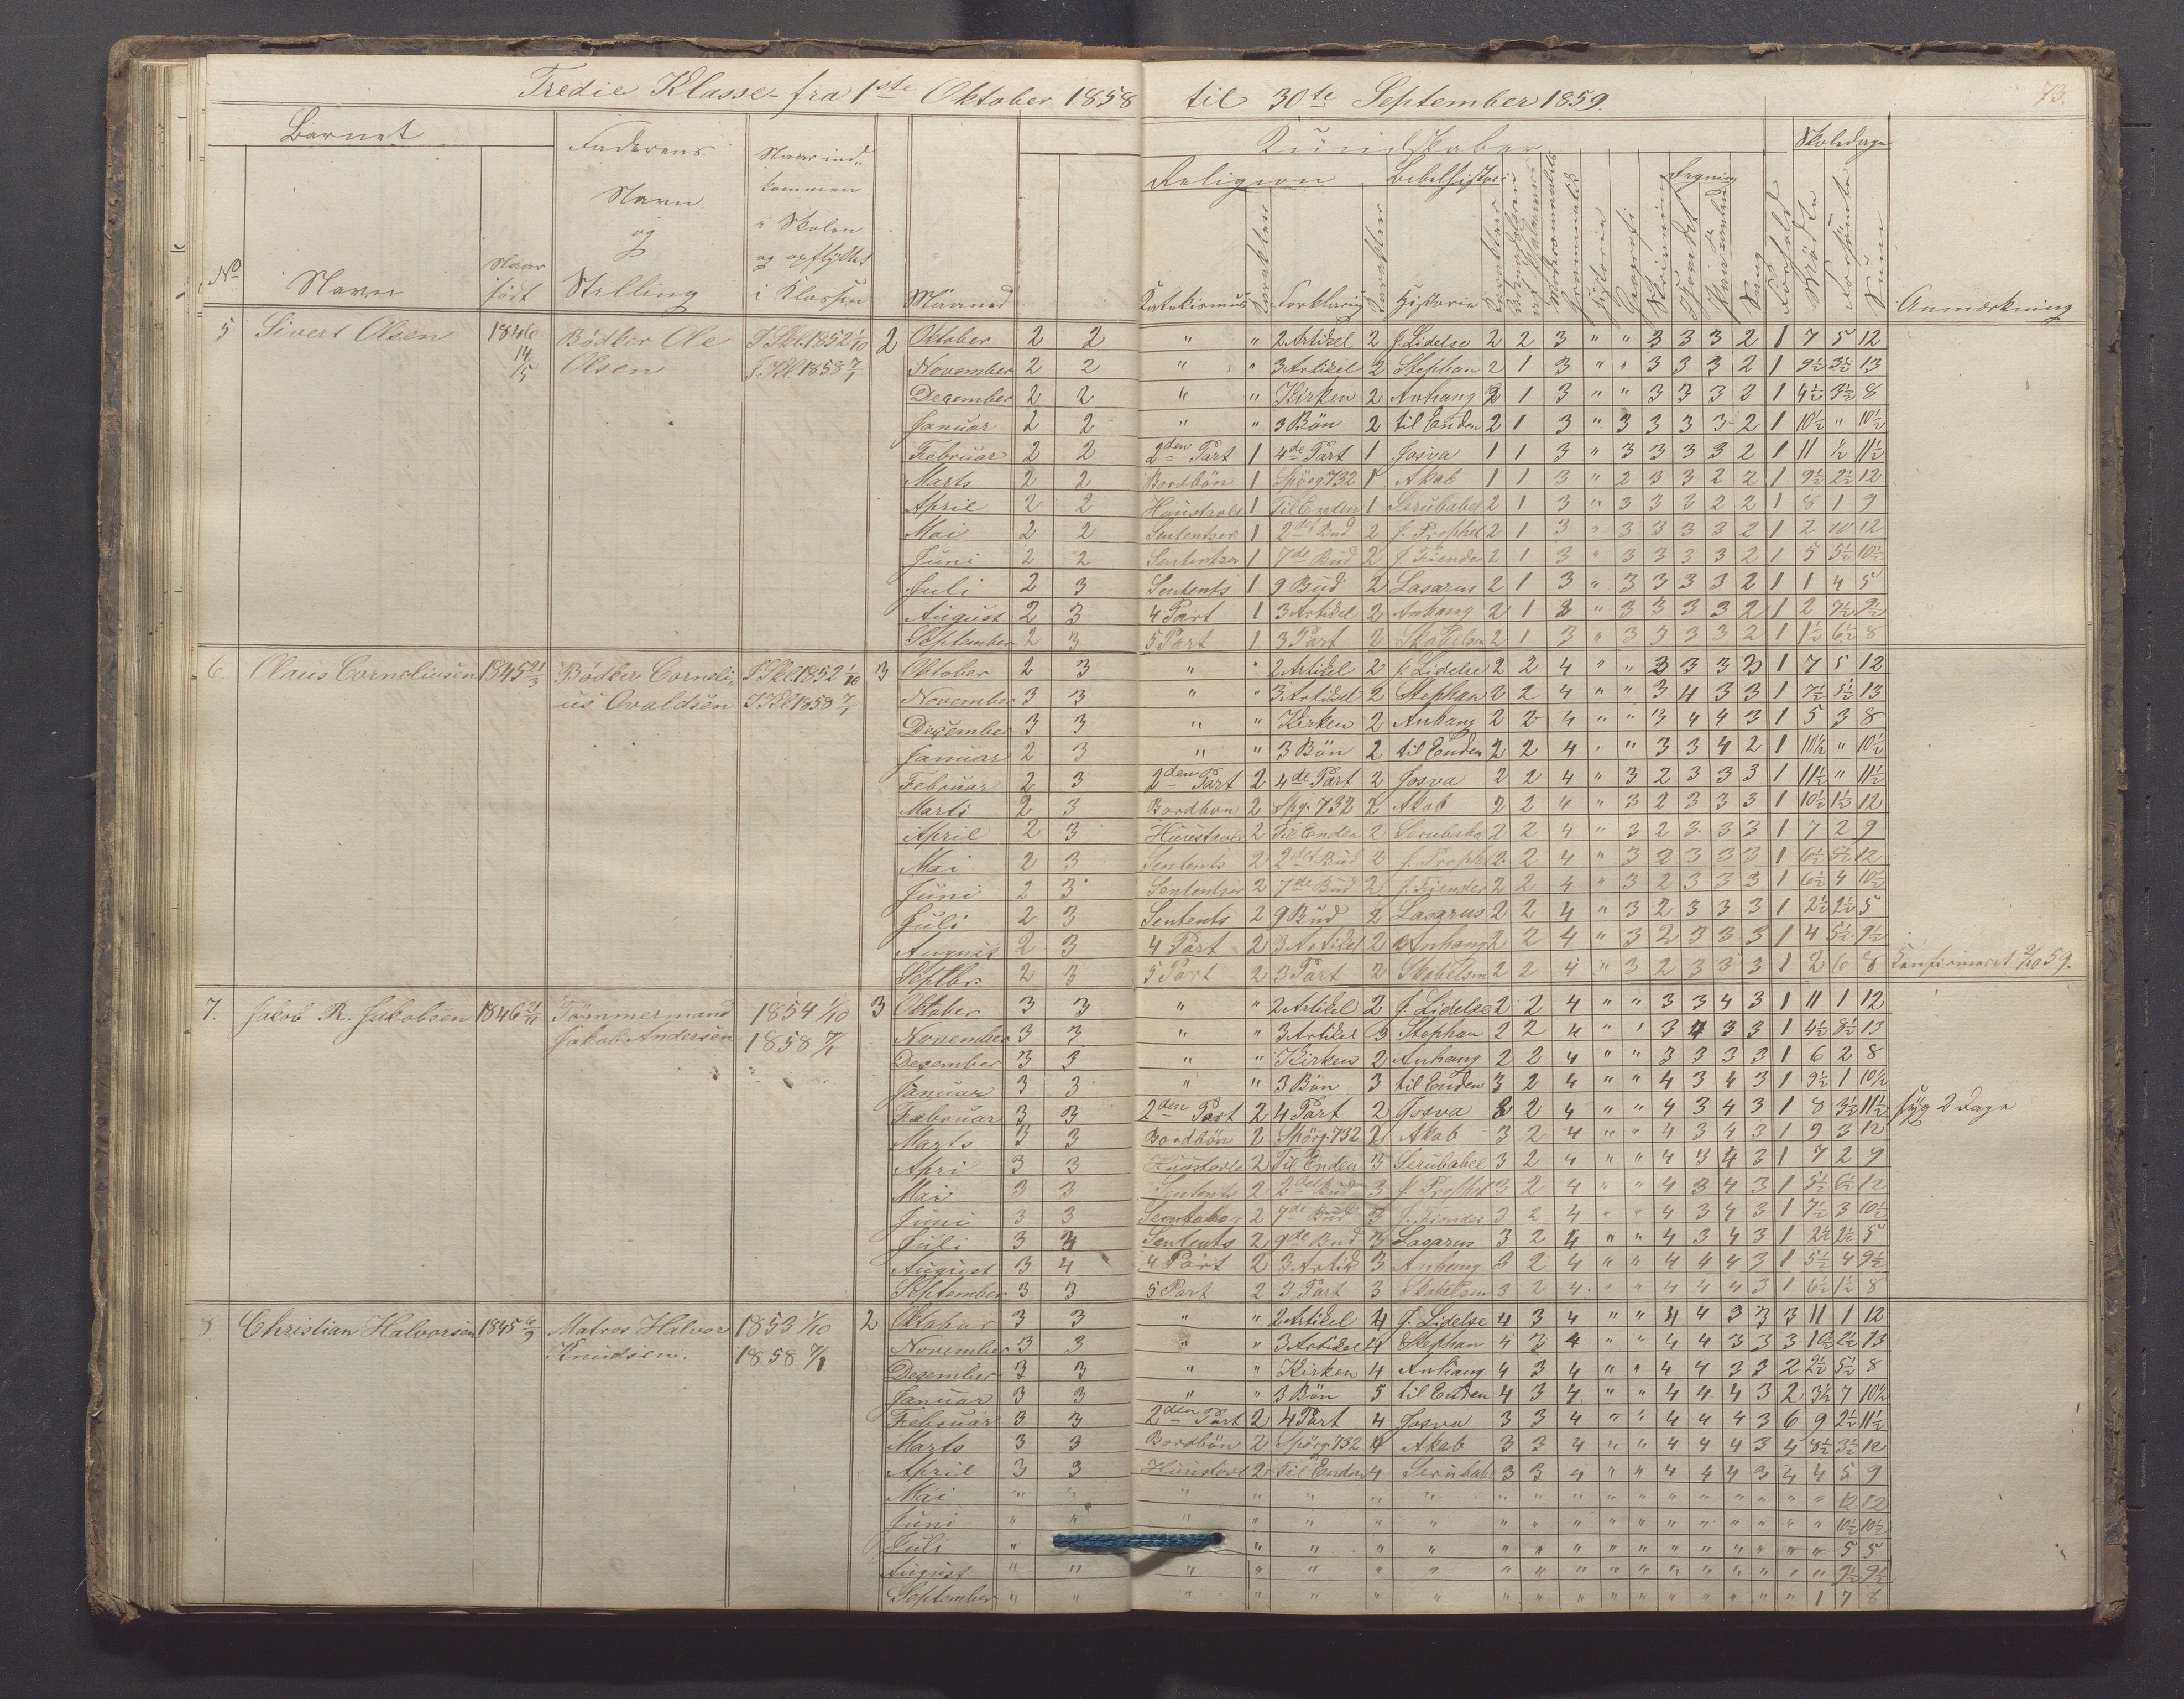 Tredie Klasse fra 1ste Oktober 1858 til 30te September 1859. 73.
Barnet Faderens Naar ind- Kundskaber Skoledage
kommen Religion Bibelhistorie Regning
Navn i Skolen
og og opflyttet
No Navn Naar født Stilling i Klassen Maaned Katekismus Karakter Forklaring Karakter Historie Karakter Historie Geografi Skrivning Sang Forhold Mødte Forsømte Sum Anmærkning
5 Sivert Olsen 1846 Bødker Ole I Skl. 1852 1/10 2 Oktober 2 2 " " 2 Artikel 2 J. Lidelse 2 2 3 " " 3 3 3 2 1 7 5 12
14/5 Olsen I Kl 1858 7/1 November 2 2 " " 3 Artikel 2 Stephan 2 1 3 " " 3 3 3 2 1 9½ 3½ 13
December 2 2 " " Kirken 2 Anhang 2 1 3 " " 3 3 3 2 1 4½ 3½ 8
Januar 2 2 " " 3 Bön 2 til Enden 2 1 3 " 3 3 3 3 2 1 10½ " 10½
Februar 2 2 2den Part 1 4de Part 1 Josva 1 1 3 " 3 3 3 3 2 1 11 ½ 11½
Marts 2 2 Bordbön 1 Spörg. 732 1 Akab 1 1 3 " 2 3 3 2 2 1 9½ 2½ 12
April 2 2 Huustavle 1 Til Enden 1 Serubabel 2 1 3 " 3 3 3 2 2 1 8 1 9
Mai 2 2 Sententser 1 2det Bud 2 J. Prophet 2 1 3 " 3 3 3 3 2 1 2 10 12
Juni 2 2 Sententser 1 7de Bud 2 J. Fiender 2 1 3 " 3 3 3 3 2 1 5 5½ 10½
Juli 2 3 Sentents 1 9 Bud 2 Lasarus 2 1 3 " 3 3 3 3 2 1 1 4 5
August 2 3 4 Part 1 3 Artikel 2 Anhang 2 1 3 " 3 3 3 3 2 1 2 7½ 9½
September 2 3 5 Part 1 3 Part 2 Skabelsen 2 1 3 " 3 3 3 3 2 1 1½ 6½ 8
6. Claus Corneliusen 1845 21/3 Bødker Corneli- I Skl 1852 1/10 3 Oktober 2 3 " " 2 Artikel 2 J. Lidelse 2 2 4 " " 3 3 3 3 1 7 5 12
us Ovaldsen I Kl. 1858 7/1 November 3 3 " " 3 Artikel 2 Stephan 2 2 4 " " 3 4 3 3 1 7½ 5½ 13
December 3 3 " " Kirken 2 Anhang 2 2 4 " " 3 4 4 3 1 5 3 8
Januar 2 3 " " 3 Bön 2 til Enden 2 2 4 " " 3 3 4 2 1 10½ " 10½
Februar 2 3 2den Part 2 4de Part 2 Josva 2 2 4 " 3 2 3 3 3 1 11½ " 11½
Marts 2 3 Bordbøn 2 Spg. 732 2 Akab 2 2 4 " 3 2 3 3 3 1 10½ 1½ 12
April 2 3 Huustavle 2 Til Enden 2 Serubabe 2 2 4 " 3 2 3 3 3 1 7 2 9
Mai 2 3 Sentents 2 2det Bud 2 J. Prophet 2 2 4 " 3 2 3 3 3 1 6½ 5½ 12
Juni 2 3 Sententser 2 7de Bud 2 J. Fiender 2 2 4 " 3 2 3 3 3 1 6½ 4 10½
Juli 2 3 Sentents 2 9 Bud 2 Lasarus 2 2 4 " 3 2 3 3 3 1 2½ 2½ 5
August 2 3 4 Part 2 3 Artikel 2 Anhang 2 2 4 " 3 2 3 3 3 1 4 5½ 9½
Septbr. 2 3 5 Part 2 3 Part 2 Skabelsen 2 2 4 " 3 2 3 3 3 1 2 6 8 Konfirmeret 2/10 59.
7. Jakob R. Jakobsen 1846 21/11 Tømmermand 1854 1/10 3 Oktober 3 3 " " 2 Artikel 2 J. Lidelse 2 2 4 " " 3 3 4 3 1 11 1 12
Jakob Andersen 1858 7/1 November 3 3 " " 3 Artikel 3 Stephan 2 2 4 " " 3 4 3 3 1 4½ 8½ 13
December 3 3 " " Kirken 2 Anhang 2 2 4 " " 3 3 3 3 1 6 2 8
Januar 3 3 " " 3 Bön 3 til Enden 3 2 4 " " 4 3 4 3 1 9½ 1 10½
Februar 3 3 2den Part 2 4 Part 2 Josva 2 2 4 " " 4 3 4 3 1 8 3½ 11½ syg 2 Dage
Marts 3 3 Bordbön 2 Spörg. 732 2 Akab 3 2 4 " " 4 3 4 3 1 9 3 12
Apri 3 3 Huustavle 2 Til Enden 3 Serubabel 3 2 4 " " 4 3 4 3 1 7 2 9
Mai 3 3 Sentents 2 2det Bud 3 J. Prophet 3 2 4 " " 4 3 4 3 1 5½ 6½ 12
Juni 3 3 2 7de Bud 3 J. Fiender 3 2 4 " " 4 3 4 3 1 7½ 3 10½
Juli 3 4 Sentents 2 9de Bud 3 Lasarus 3 2 4 " " 4 3 4 3 1 2½ 2½ 5
August 3 4 4 Part 2 3 Artik 3 Anhang 3 2 4 " " 4 4 4 3 1 5½ 4 9½
September 3 3 5 Part 2 3 Part 3 Skabelsen 3 2 4 " " 4 4 4 3 1 6½ 1½ 8
8. Christian Halvorsen 1845 6/9 Matros Halvor 1853 1/10 2 Oktober 3 3 " " 2 Artikel 4 J. Lidelse 4 3 4 " " 4 4 3 3 3 11 1 12
Knudsen. 1858 7/1 November 3 3 " " 3 Artikel 4 Stephan 4 3 4 " " 4 4 3 3 3 10½ 2½ 13
December 3 3 " " Kirken 4 Anhang 4 3 4 " " 4 4 3 3 2 2½ 5½ 8
Januar 3 3 " " 3 Bön 5 til Enden 4 3 4 " " 4 4 4 3 2 3½ 7 10½
Februar 3 3 2den Part 2 4 Part 4 Josva 3 3 4 " " 4 4 4 3 6 9 2½ 11½
Marts 3 3 Bordbön 2 Spörg. 732 4 Akab 3 3 4 " " 4 4 4 3 4 8½ 3½ 12
April 3 3 Huustavl 2 Til Enden 4 Serubab 3 3 4 " " 4 4 4 3 4 4 5 9
Mai " " " " " " " " " " " " " " " " " " 12 12
Juni " " " " " " " " " " " " " " " " " " 10½ 10½
Juli " " " " " " " " " " " " " " " " 5 5
August " " " " " " " " " " " " " " " " " " 9½ 9½
September " " " " " " " " " " " " " " " " " 1 7 8